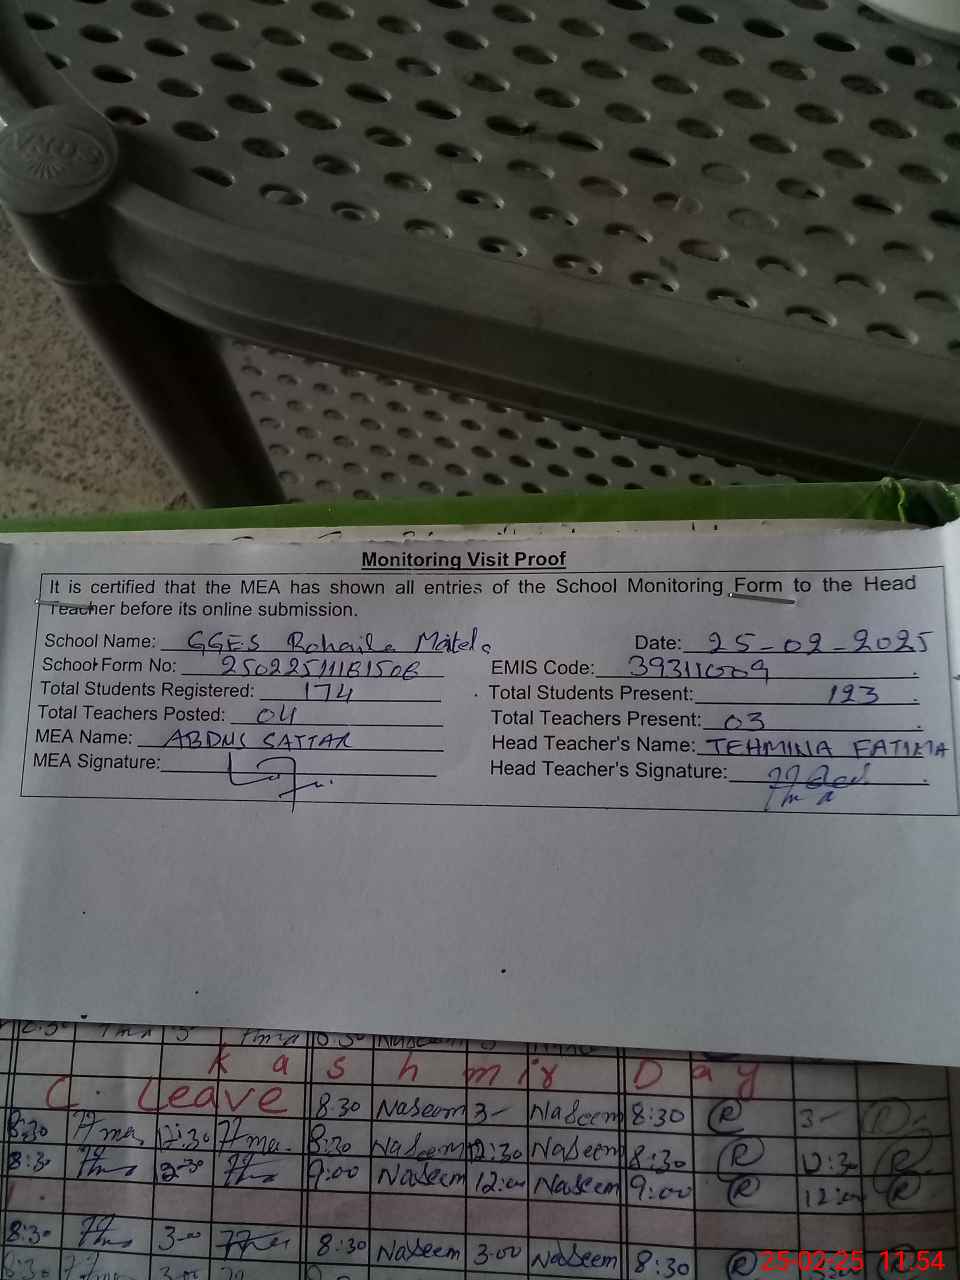 Monitoring Visit Proof
It is certified that the MEA has shown all entries of the School Monitoring Form to the Head
Teacher before its online submission.
School Name: GGES Rohaila Matela Date: 25-02-2025
School Form No: EMIS Code:
Total Students Registered: 174 Total Students Present: 123
Total Teachers Posted: 04 Total Teachers Present: 03
MEA Name: ABDUS SATTAR Head Teacher's Name: TEHMINA FATIMA
MEA Signature: Head Teacher's Signature:
Kashmir Day
C. Leave 8.30 Naseem 3- Naseem 8:30 R 3- R
8:30 12:30 8:30 Naseem 12:30 Naseem 8:30 R 12:30 R
8:30 9:00 Naseem 12:00 Naseem 9:00 R 12:00 R
8:30 3-00 8:30 Naseem 3-00 Naseem 8:30 R
25-02-25 11.54